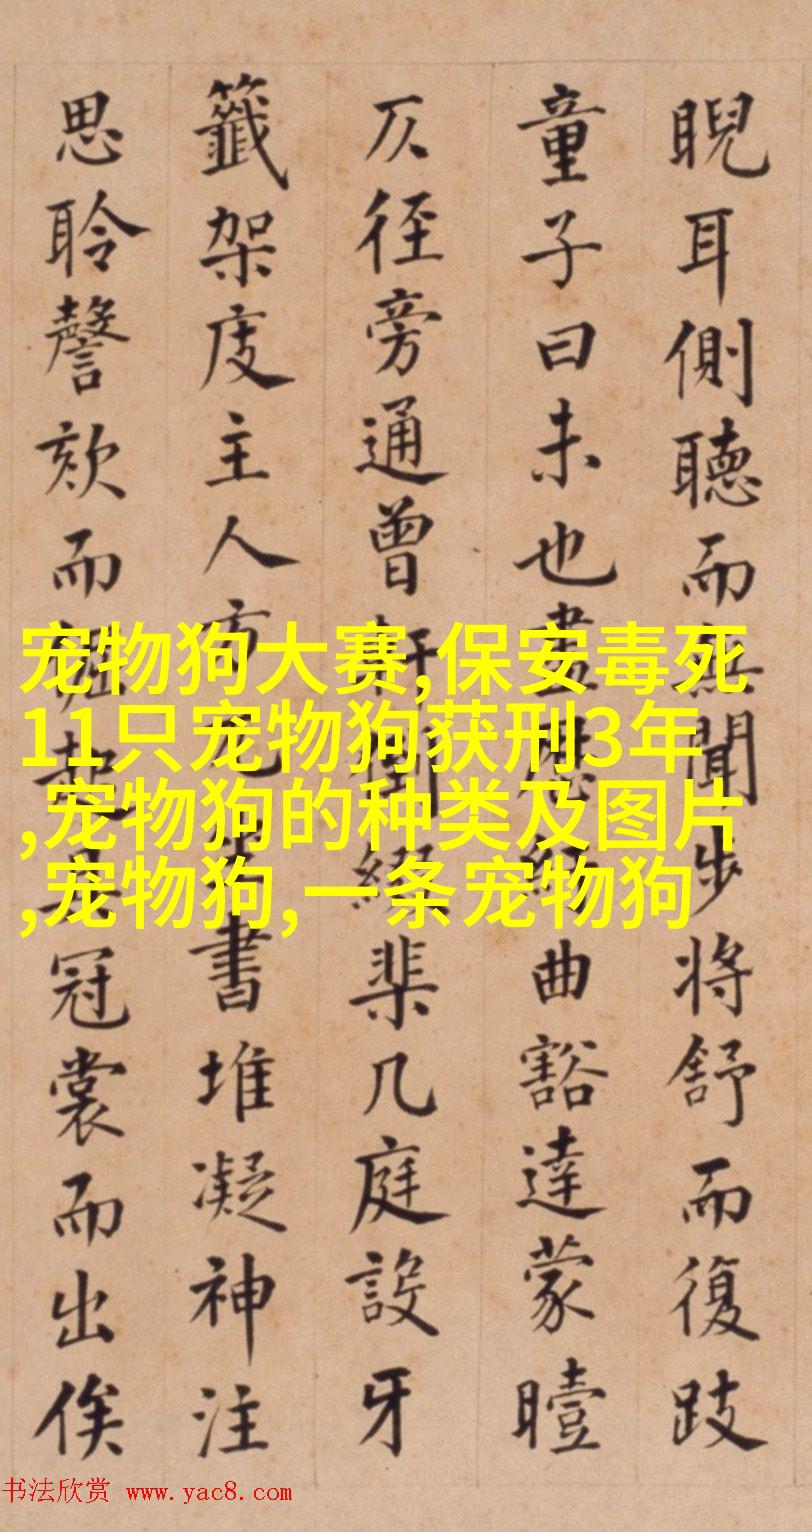 睨耳側聽而無聞步將舒而復跂
童子曰未也曲豁達蒙曀
仄徑旁通曾軒綴棐几庭設牙
籤架庋主人方書堆凝神注
思聆謦欬而起具冠裳而出俟
宠物狗大赛,保安毒死
11只宠物狗获刑3年
,宠物狗的种类及图片
,宠物狗,一条宠物狗
书法欣赏 www.yac8.com